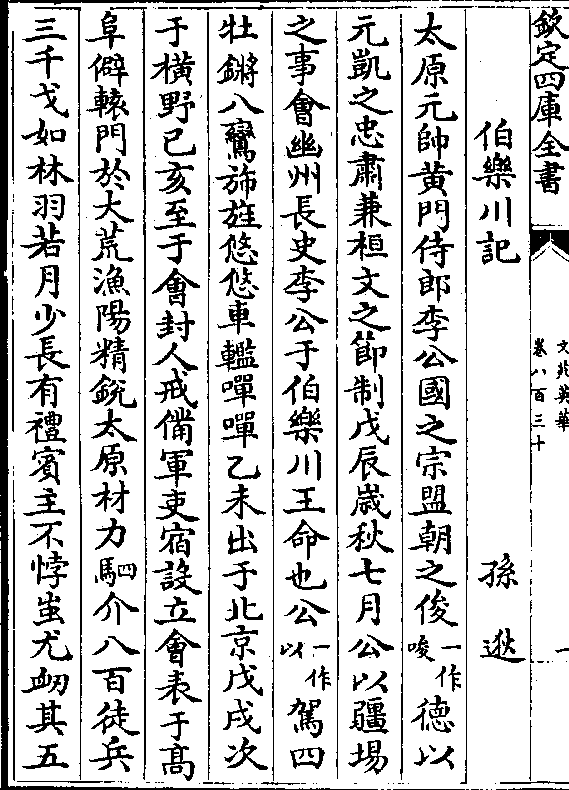 欽定四庫全書
文苑英華
卷八百三十
一
伯樂川記
孫逖
太原元帥黃門侍郎李公國之宗盟朝之俊一作畯德以
元凱之忠肅兼桓文之節制戊辰歲秋七月公以疆場
之事會幽州長史李公于伯樂川王命也公一作以駕四
牡鏘八鸞斾旌悠悠車轞嘽嘽乙未出于北京戊戌次
于橫野己亥至于會封人戒備軍吏宿設立會表于高
阜僻轅門於大荒漁陽精銳太原材力駟介八百徒兵
三千戈如林羽若月少長有禮賓主不悖蚩尤衂其五